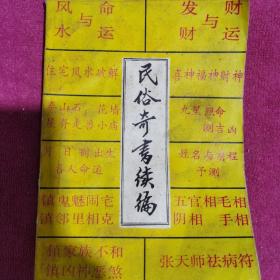 风 命
与
水 运
发 财
与
财 运
民俗奇书续编
住宅风水破解
喜神福神财神
泰山石 花墙
屋脊走兽小庙
九星 观命
测吉凶
月 日 时出生
各人命运
姓名与前程
予测
镇鬼魅闹宅
镇邻里相克
五官相毛相
阴相 手相
镇家族不和
镇凶神恶煞
张天师祛病符